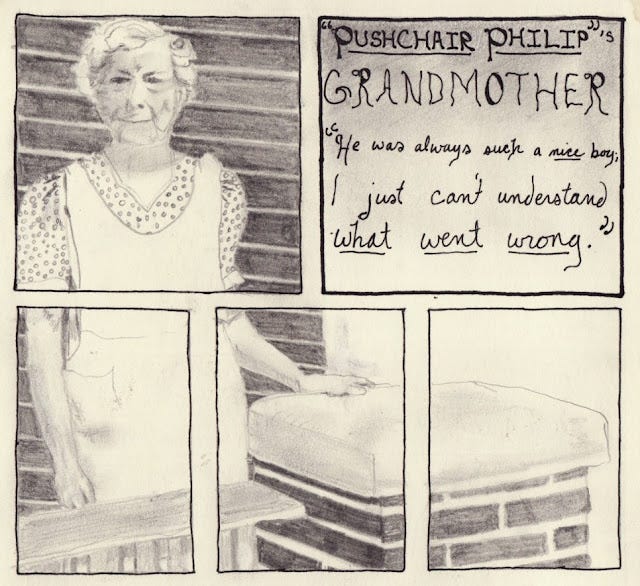 "PUSHCHAIR PHILIP"'s
GRANDMOTHER
"He was always such a nice boy,
I just can't understand
what went wrong."